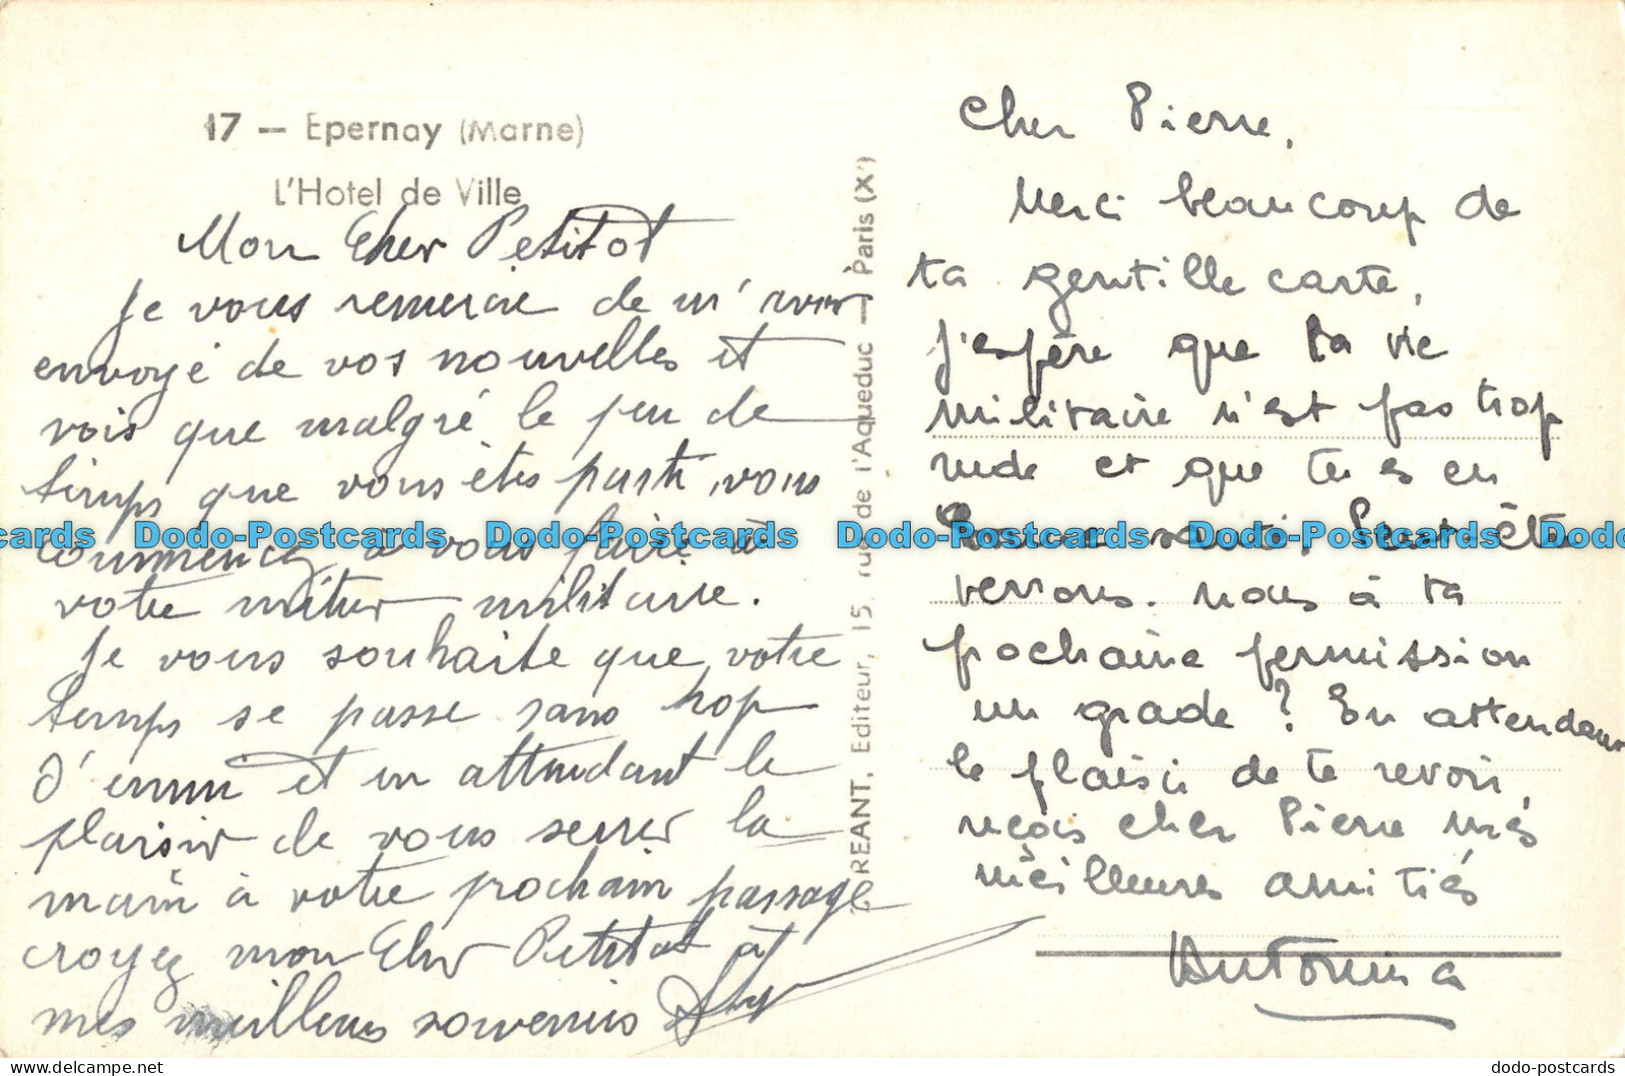 17 — Epernay (Marne)
L'Hotel de Ville
Mon Cher Petitot
Je vous remercie de m'avoir
envoyé de vos nouvelles et
vois que malgré le peu de
temps que vous êtes parti, vous
commencez à vous faire à
votre métier militaire.
Je vous souhaite que votre
temps se passe sans trop
d'ennui et en attendant le
plaisir de vous serrer la
main à votre prochain passage
croyez mon Cher Petitot à
mes meilleurs souvenirs
REANT, Editeur, 15, rue de l'Aqueduc — Paris (X')
Cher Pierre,
Merci beaucoup de
ta gentille carte,
j'espère que ta vie
militaire n'est pas trop
rude et que tu es en
bonne santé. Peut-être
verrons-nous à ta
pochaine permission
un grade ? En attendant
le plaisir de te revoir,
reçois cher Pierre mes
meilleures amitiés
Antonina
Dodo-Postcards Dodo-Postcards Dodo-Postcards Dodo-Postcards Dodo-Postcards
dodo-postcards